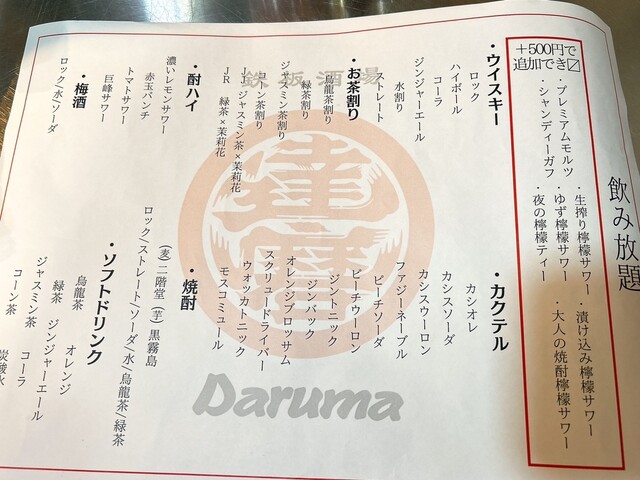 飲み放題
＋500円で
追加でき〼
・プレミアムモルツ
・シャンディーガフ
・生搾り檸檬サワー
・ゆず檸檬サワー
・夜の檸檬ティー
・漬け込み檸檬サワー
・大人の焼酎檸檬サワー
・ウイスキー
ロック
ハイボール
コーラ
ジンジャーエール
水割り
ストレート
・お茶割り
烏龍茶割り
緑茶割り
ジャスミン茶割り
コーン茶割り
JJ ジャスミン茶×茉莉花
JR 緑茶×茉莉花
・酎ハイ
濃いレモンサワー
赤玉パンチ
トマトサワー
巨峰サワー
・梅酒
ロック/水/ソーダ
・カクテル
カシオレ
カシスソーダ
カシスウーロン
ファジーネーブル
ピーチソーダ
ピーチウーロン
ジントニック
ジンバック
オレンジブロッサム
スクリュードライバー
ウォッカトニック
モスコミュール
・焼酎
(麦)二階堂 (芋)黒霧島
ロック/ストレート/ソーダ/水/烏龍茶/緑茶
・ソフトドリンク
烏龍茶
緑茶
ジャスミン茶
コーン茶
オレンジ
ジンジャーエール
コーラ
炭酸水
鉄板酒場
達磨
Daruma